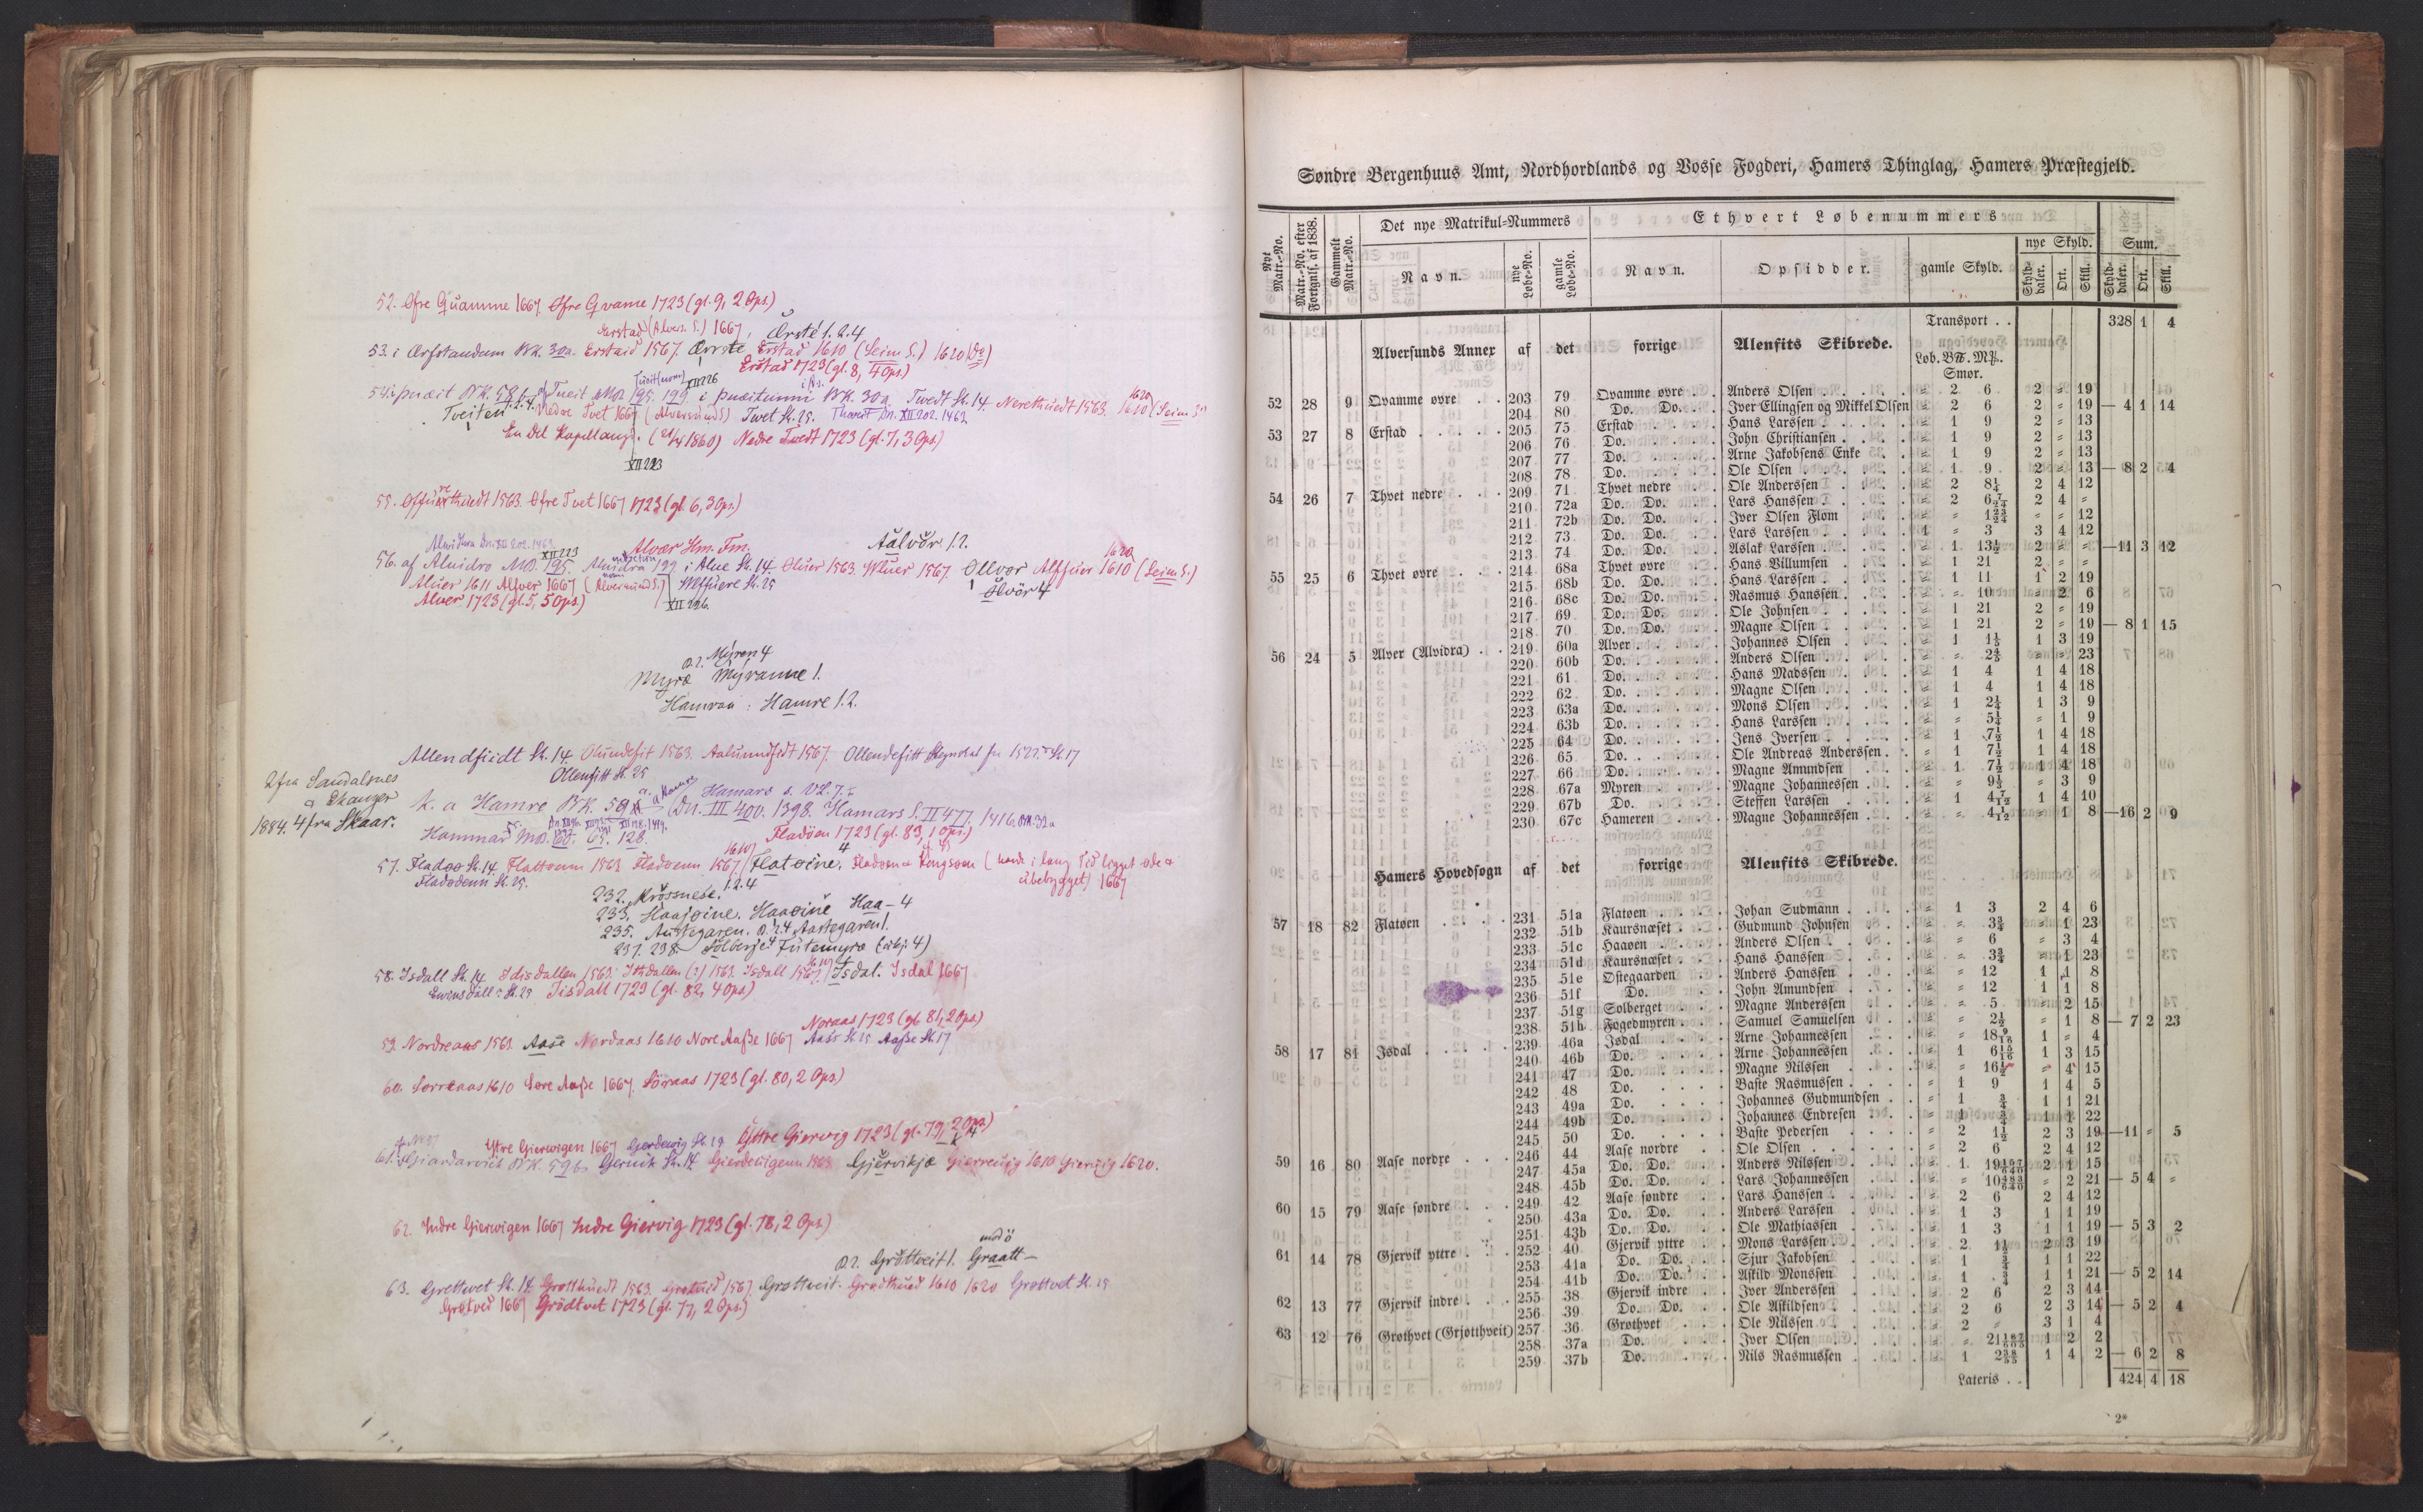 52. Øfre Quamme 1667. Øfre Qvame 1723 (gl. 9, 2 Ops.)
Aerstad (Alvers. S.) 1667, Ærsté 1.2.4
53. i Ærfstandum BK. 30a. Erstaid 1567. Ærste Erstad 1610 (Seim S.) 1620 (Do)
Erstad 1723 (gl. 8, 4 Ops.)
54. i þuæit BK. 58 Tueit MR. 195. 199 i þuæitunni BK. 30a. Twedt St. 14. Nerethuedt 1563. 1610 (Seim S.)
Tveiten 1.2.4. Nedre Tvet 1667 (Alversunds S.) Twet St. 25. Thuæit Dn. XII 202. 1463
En Del Kapellangs. (21/4 1860) Nedre Twedt 1723 (gl. 7, 3 Ops.)
XII 223
55. Offuerthuedt 1563. Øfre Tvet 1667 1723 (gl. 6, 3 Ops.)
Aalvör 1.2.
Alvidra Dn. XII 202. 1463 XII 223 Alvær Hm. Fm.
56. af Aluidro MR. 195. Aluidra 199 i Alue St. 14. Oluer 1563. Wluer 1567. Ollvor Alffuer 1610 (Seim S.)
Aluer 1611 Allver 1667 (Alversund S.) Wlffuere St. 25 Ölvör 4
Alver 1723 (gl. 5, 5 Ops.) XII 226.
D.2. Myren 4
Myræ Myranne 1.
Hamran : Hamre 1.2.
Allendfiidt St. 14. Olundefit 1563. Aalunndfidt 1567. Ollendefitt Skipreide fr. 1522 St. 17
Ollenfitt St. 25
2 fra Sandalsnes
a Skauger
1884. 4 fra Skaar.
k. a Hamre BK. 58 Hamars s. VL. 7.
Dn. III 400. 1398. Hamars S. II 477. 1416.
Hammar MR. 60. 65. 128.
Fladöen 1723 (gl. 83, 1 Ops.)
57. Fladøø St. 14. Flattoenn 1563 Fladoenn 1567. Flatøine. Fladøen a Kongsøen (har i lang Tid ligget øde a
Fladödenn St. 25. ubebygget) 1667
232. Krössnese. 1.2.4
233. Haajøine. Haaøine Haa- 4
235. Austegaren. D. 2.4 Aastegaren 1.
237. 238. Solberje 4 Futemyra (ubj. 4)
58. Isdall St. 14. Idisdallen 1563. Isdall 1567. Isdal. Isdal 1667
St. 25 Tisdall 1723 (gl. 82, 4 Ops.)
Noraas 1723 (gl. 81, 2 Ops.)
59. Nordreaas 1563. Aase Nordaas 1610 Nore Aasse 1667 Aass St. 25 Aasse St. 17
60. Sørreaas 1610 Søre Aasse 1667. Söraas 1723 (gl. 80, 2 Ops.)
Ytre Gierwigen 1667 Gerdewig St. 19 Yttre Giervig 1723 (gl. 79, 2 Ops.)
61. i Giardarvik BK. 59b. Geruik St. 14 Gierdewigenn 1563. Gjervikjæ Gierreuig 1610 Gieruig 1620.
62. Indre Gierwigen 1667 Indre Giervig 1723 (gl. 78, 2 Ops.)
med ö
D.2. Gröttveit 1. Graatt-
63. Grettwet St. 14. Grotthuedt 1563. Grotued 1567. Grøttveit. Grødthued 1610 1620 Grottvet St. 25
Grøtved 1667 Grödtvet 1723 (gl. 77, 2 Ops.)
Søndre Bergenhuus Amt, Nordhordlands og Vosse Fogderi, Hamers Thinglag, Hamers Præstegjeld.
Nyt Matr.-No. Matr.-No. efter Fortgnls. af 1838. Gammelt Matr.-No. Det nye Matrikul-Nummers Ethvert Løbenummers
Navn. nye Løbe-No. gamle Løbe-No. Navn. Opsidder. gamle Skyld. nye Skyld. Sum.
Skylddaler. Ort. Skill. Skylddaler. Ort. Skill.
Transport . . 328 1 4
Alversunds Annex af det forrige Alenfits Skibrede. Løb. B℔. M℔.
Smør.
52 28 9 Qvamme øvre . . 203 79 Qvamme øvre . . Anders Olsen . . . = 2 6 2 = 19
204 80 Do. Do. . . Iver Ellingsen og Mikkel Olsen = 2 6 2 = 19 — 4 1 14
53 27 8 Erstad . . . . 205 75 Erstad . . . Hans Larssen . . . = 1 9 2 = 13
206 76 Do. . . . John Christiansen . . = 1 9 2 = 13
207 77 Do. . . . Arne Jakobsens Enke . . = 1 9 2 = 13
208 78 Do. . . . Ole Olsen . . . = 1 9 2 = 13 — 8 2 4
54 26 7 Thvet nedre . . . 209 71 Thvet nedre . . Ole Anderssen . . . = 2 8¼ 2 4 12
210 72a Do. Do. . . Lars Hanssen . . . = 2 6 7/24 2 4 =
211 72b Do. Do. . . Iver Olsen Flom . . = = 1 23/24 = = 12
212 73 Do. Do. . . Lars Larssen . . . 1 = 3 3 4 12
213 74 Do. Do. . . Aslak Larssen . . . = 1 13½ 2 = = —11 3 12
55 25 6 Thvet øvre . . . 214 68a Thvet øvre . . Hans Villumsen . . = 1 21 2 = =
215 68b Do. Do. . . Hans Larssen . . . = 1 11 1 2 19
216 68c Do. Do. . . Rasmus Hanssen . . = = 10 = 2 6
217 69 Do. Do. . . Ole Johnsen . . . = 1 21 2 = 19
218 70 Do. Do. . . Magne Olsen . . . = 1 21 2 = 19 — 8 1 15
56 24 5 Alver (Alvidra) . . 219 60a Alver . . . Johannes Olsen . . = 1 1⅕ 1 3 19
220 60b Do. . . . Anders Olsen . . . = = 2⅘ = = 23
221 61 Do. . . . Hans Madssen . . . = 1 4 1 4 18
222 62 Do. . . . Magne Olsen . . . = 1 4 1 4 18
223 63a Do. . . . Mons Olsen . . . = 1 2¼ 1 3 9
224 63b Do. . . . Hans Larssen . . . = = 5¼ = 1 9
225 64 Do. . . . Jens Iversen . . . = 1 7½ 1 4 18
226 65 Do. . . . Ole Andreas Anderssen . . = 1 7½ 1 4 18
227 66 Do. . . . Magne Amundsen . . = 1 7½ 1 4 18
228 67a Myren . . . Magne Johannessen . . = = 9⅓ = 3 9
229 67b Do. . . . Steffen Larssen . . = 1 4 7/12 1 4 10
230 67c Hameren . . Magne Johannessen . . = = 4 1/12 = 1 8 —16 2 9
Hamers Hovedsogn af det forrige Alenfits Skibrede.
57 18 82 Flatøen . . . 231 51a Flatøen . . . Johan Sudmann . . . = 1 3 2 4 6
232 51b Kaursnæset . . Gudmund Johnsen . . = = 3¾ = 1 23
233 51c Haaøen . . . Anders Olsen . . . = = 6 = 3 4
234 51d Kaursnæset . . Hans Hanssen . . . = = 3¾ = 1 23
235 51e Østegaarden . . Anders Hanssen . . = = 12 1 1 8
236 51f Do. . . . John Amundsen . . = = 12 1 1 8
237 51g Solberget . . Magne Anderssen . . = = 5 = 2 15
238 51h Fogedmyren . . Samuel Samuelsen . . = = 2½ = 1 8 — 7 2 23
58 17 81 Isdal . . . . 239 46a Isdal . . . Arne Johannessen . . = = 18 9/16 1 = 4
240 46b Do. . . . Arne Johannessen . . = 1 6 15/16 1 3 15
241 47 Do. . . . Magne Nilssen . . . = = 16½ = 4 15
242 48 Do. . . . Baste Rasmussen . . = 1 9 1 4 5
243 49a Do. . . . Johannes Gudmundsen . . = 1 ¾ 1 1 21
244 49b Do. . . . Johannes Endresen . . = 1 ¾ 1 1 22
245 50 Do. . . . Baste Pedersen . . = 2 1½ 2 3 19 —11 = 5
59 16 80 Aase nordre . . . 246 44 Aase nordre . . Ole Olsen . . . = 2 6 2 4 12
247 45a Do. Do. . . Anders Nilssen . . = 1 19 157/640 2 1 15
248 45b Do. Do. . . Lars Johannessen . . = = 10 483/640 = 2 21 — 5 4 =
60 15 79 Aase søndre . . . 249 42 Aase søndre . . Lars Hanssen . . . = 2 6 2 4 12
250 43a Do. Do. . . Anders Larssen . . = 1 3 1 1 19
251 43b Do. Do. . . Ole Mathiassen . . = 1 3 1 1 19 — 5 3 2
61 14 78 Gjervik yttre . . . 252 40 Gjervik yttre . . Mons Larssen . . . = 2 1½ 2 3 19
253 41a Do. Do. . . Sjur Jakobsen . . = 1 ¾ 1 1 22
254 41b Do. Do. . . Askild Monssen . . = 1 ¾ 1 1 21 — 5 2 14
62 13 77 Gjervik indre . . . 255 38 Gjervik indre . . Iver Anderssen . . = 2 6 2 3 14
256 39 Do. Do. . . Ole Askildsen . . = 2 6 2 3 14 — 5 2 4
63 12 76 Grøthvet (Grjotthveit) 257 36 Grøthvet . . Ole Nilssen . . . = 2 = 3 1 4
258 37a Do. . . . Iver Olsen . . . = = 1 2 2
259 37b Do. . . . Nils Rasmussen . . = 1 1 4 2 — 6 2 8
Lateris . . 424 4 18
2*